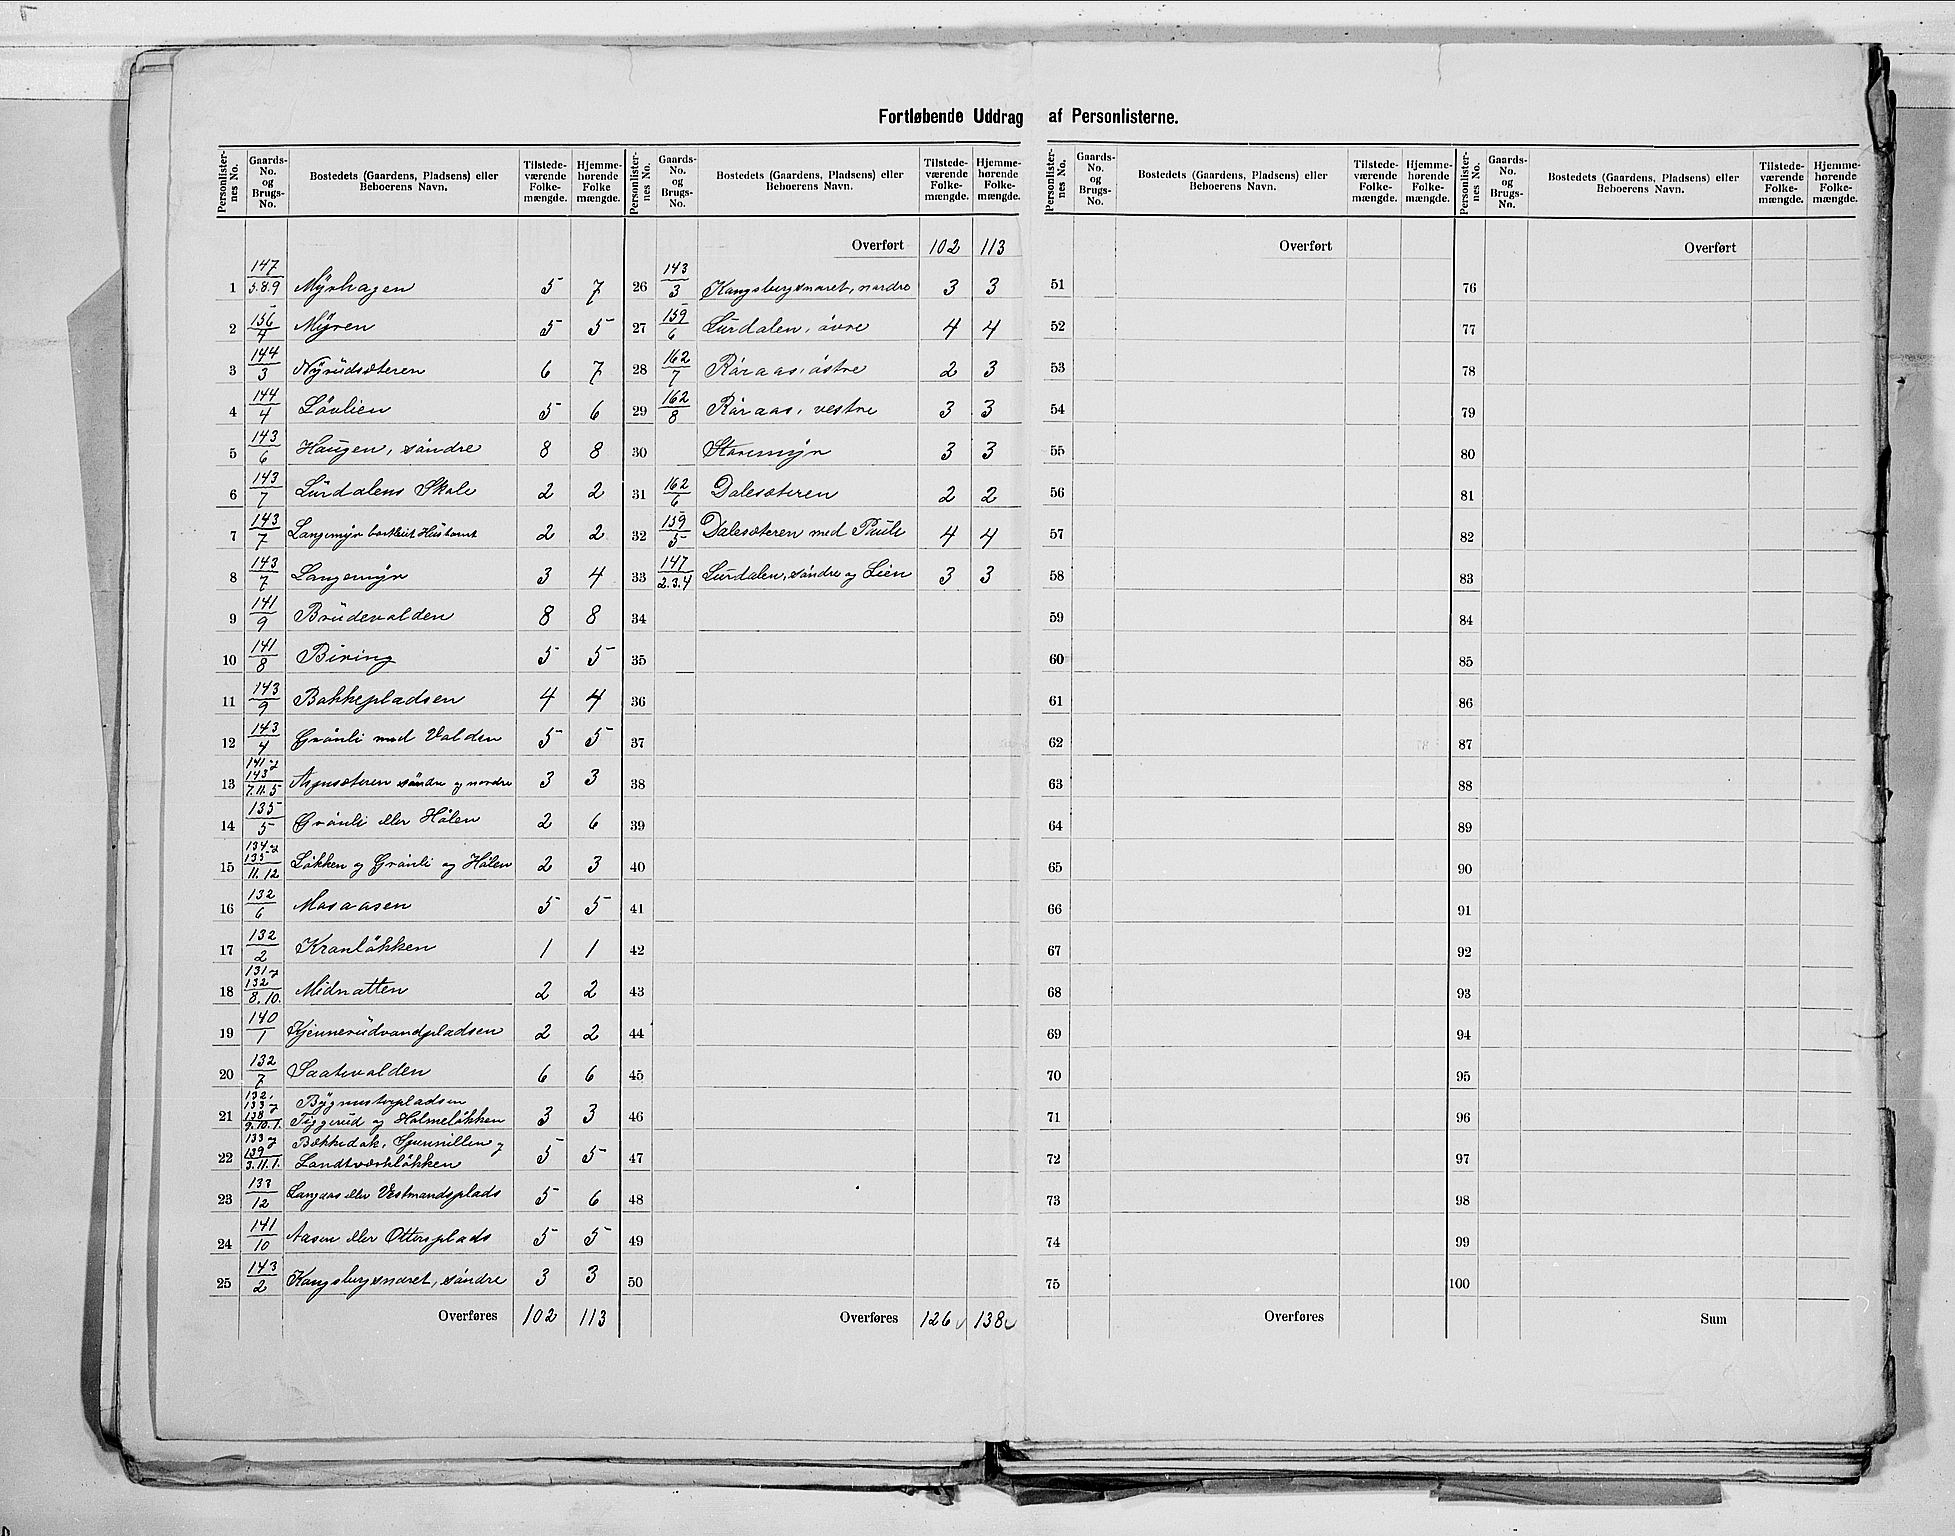 Fortløbende Uddrag af Personlisterne.
Personlister-nes No. Gaards-No. og Brugs-No. Bostedets (Gaardens, Pladsens) eller Beboerens Navn. Tilstede-værende Folke-mængde. Hjemme-hørende Folke mængde.
1 147/5.8.9 Myrhagen 5 7
2 156/4 Myren 5 5
3 144/3 Nyrudsæteren 6 7
4 144/4 Lövlien 5 6
5 143/6 Haugen, söndre 8 8
6 143/7 Lurdalens Skole 2 2
7 143/7 Langemyr 2 2
8 143/7 Langemyr 3 4
9 141/9 Brudevolden 8 8
10 141/8 Biring 5 5
11 143/9 Bakkepladsen 4 4
12 143/4 Grönli med Volden 5 5
13 141 og 143/7.11.5 söndre og nordre 3 3
14 135/5 Grönli eller Hölen 2 6
15 134 og 135/11.12 Lökken og Grönli og Hölen 2 3
16 132/6 Mosaasen 5 5
17 132/2 Kranlökken 1 1
18 131 og 132/8.10. Midnatten 2 2
19 140/1 Kjennerudvandpladsen 2 2
20 132/7 Saatevolden 6 6
21 132, 133 og 138/9.10.1. Bygmesterpladsen
Tiggerud og Holmelökken 3 3
22 133 og 139/3.11.1. Bækkedok, og
Landtværklökken 5 5
23 133/12 Langaas eller Vestmandsplads 5 6
24 141/10 Aasen eller Ottersplads 5 5
25 143/2 Kongsbergsnaret, söndre 3 3
Overføres 102 113
Personlister-nes No. Gaards-No. og Brugs-No. Bostedets (Gaardens, Pladsens) eller Beboerens Navn. Tilstede-værende Folke-mængde. Hjemme-hørende Folke-mængde.
Overført 102 113
26 143/3 Kongsbergsnaret, nordre 3 3
27 159/6 Lurdalen, övre 4 4
28 162/7 Röraas, östre 2 3
29 162/8 Röraas, vestre 3 3
30 Storemyr 3 3
31 162/6 Dalesæteren 2 2
32 159/5 Dalesæteren med Paule 4 4
33 147/2.3.4 Lurdalen, söndre og Lien 3 3
34
35
36
37
38
39
40
41
42
43
44
45
46
47
48
49
50
Overføres 126 138
Personlister-nes No. Gaards-No. og Brugs-No. Bostedets (Gaardens, Pladsens) eller Beboerens Navn. Tilstede-værende Folke-mængde. Hjemme-hørende Folke-mængde.
Overført
51
52
53
54
55
56
57
58
59
60
61
62
63
64
65
66
67
68
69
70
71
72
73
74
75
Overføres
Personlister-nes No. Gaards-No. og Brugs-No. Bostedets (Gaardens, Pladsens) eller Beboerens Navn. Tilstede-værende Folke-mængde. Hjemme-hørende Folke-mængde.
Overført
76
77
78
79
80
81
82
83
84
85
86
87
88
89
90
91
92
93
94
95
96
97
98
99
100
Sum